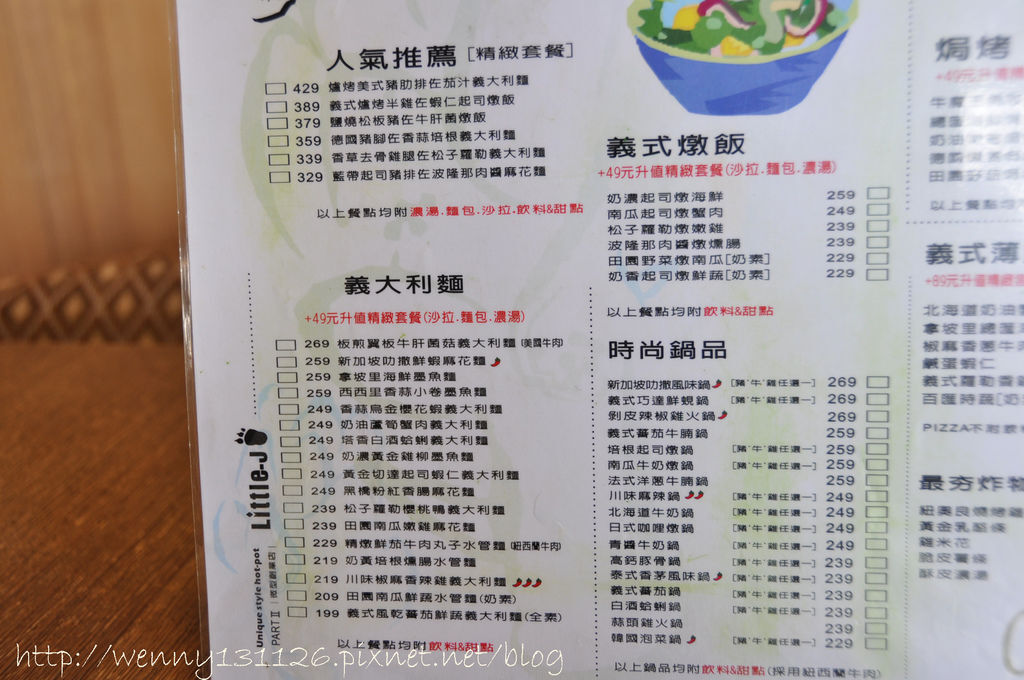 人氣推薦[精緻套餐]
429 爐烤美式豬肋排佐茄汁義大利麵
389 義式爐烤半雞佐蝦仁起司燉飯
379 鹽燒松板豬佐牛肝菌燉飯
359 德國豬腳佐香蒜培根義大利麵
339 香草去骨雞腿佐松子蘿勒義大利麵
329 藍帶起司豬排佐波隆那肉醬麻花麵
以上餐點均附濃湯.麵包.沙拉.飲料&甜點
義大利麵
+49元升值精緻套餐(沙拉.麵包.濃湯)
269 板煎翼板牛肝菌菇義大利麵(美國牛肉)
259 新加坡叻撒鮮蝦麻花麵
259 拿坡里海鮮墨魚麵
259 西西里香蒜小卷墨魚麵
249 香蒜烏金櫻花蝦義大利麵
249 奶油蘆筍蟹肉義大利麵
249 塔香白酒蛤蜊義大利麵
249 奶濃黃金雞柳墨魚麵
249 黃金切達起司蝦仁義大利麵
249 黑橋粉紅香腸麻花麵
239 松子蘿勒櫻桃鴨義大利麵
239 田園南瓜嫩雞麻花麵
229 精燉鮮茄牛肉丸子水管麵(紐西蘭牛肉)
219 奶黃培根燻腸水管麵
219 川味椒麻香辣雞義大利麵
209 田園南瓜鮮蔬水管麵(奶素)
199 義式風乾蕃茄鮮蔬義大利麵(全素)
以上餐點均附飲料&甜點
Little-J
Unique style hot-pot
PART II
義式燉飯
+49元升值精緻套餐(沙拉.麵包.濃湯)
奶濃起司燉海鮮 259
南瓜起司燉蟹肉 249
松子蘿勒燉嫩雞 239
波隆那肉醬燉燻腸 239
田園野菜燉南瓜[奶素] 229
奶香起司燉鮮蔬[奶素] 229
以上餐點均附飲料&甜點
時尚鍋品
新加坡叻撒風味鍋 [豬‧牛‧雞任選一] 269
義式巧達鮮蜆鍋 [豬‧牛‧雞任選一] 269
剝皮辣椒雞火鍋 269
義式蕃茄牛腩鍋 259
培根起司燉鍋 [豬‧牛‧雞任選一] 259
南瓜牛奶燉鍋 [豬‧牛‧雞任選一] 259
法式洋蔥牛腩鍋 259
川味麻辣鍋 [豬‧牛‧雞任選一] 249
北海道牛奶鍋 [豬‧牛‧雞任選一] 249
日式咖哩燉鍋 [豬‧牛‧雞任選一] 249
青醬牛奶鍋 [豬‧牛‧雞任選一] 249
高鈣豚骨鍋 [豬‧牛‧雞任選一] 239
泰式香茅風味鍋 [豬‧牛‧雞任選一] 239
義式蕃茄鍋 [豬‧牛‧雞任選一] 239
白酒蛤蜊鍋 [豬‧牛‧雞任選一] 239
蒜頭雞火鍋 239
韓國泡菜鍋 [豬‧牛‧雞任選一] 229
以上鍋品均附飲料&甜點(採用紐西蘭牛肉)
焗烤
+49元升值精
田園野
以上餐點均
義式薄
+89元升值精緻
北海道奶油
拿坡里總匯
椒麻香蔥牛
鹹蛋蝦仁
義式蘿勒香
百匯時蔬[奶
PIZZA不附飲
最夯炸物
紐奧良燒烤雞
黃金乳酪條
雞米花
脆皮薯條
酥皮濃湯
http://wenny131126.pixnet.net/blog